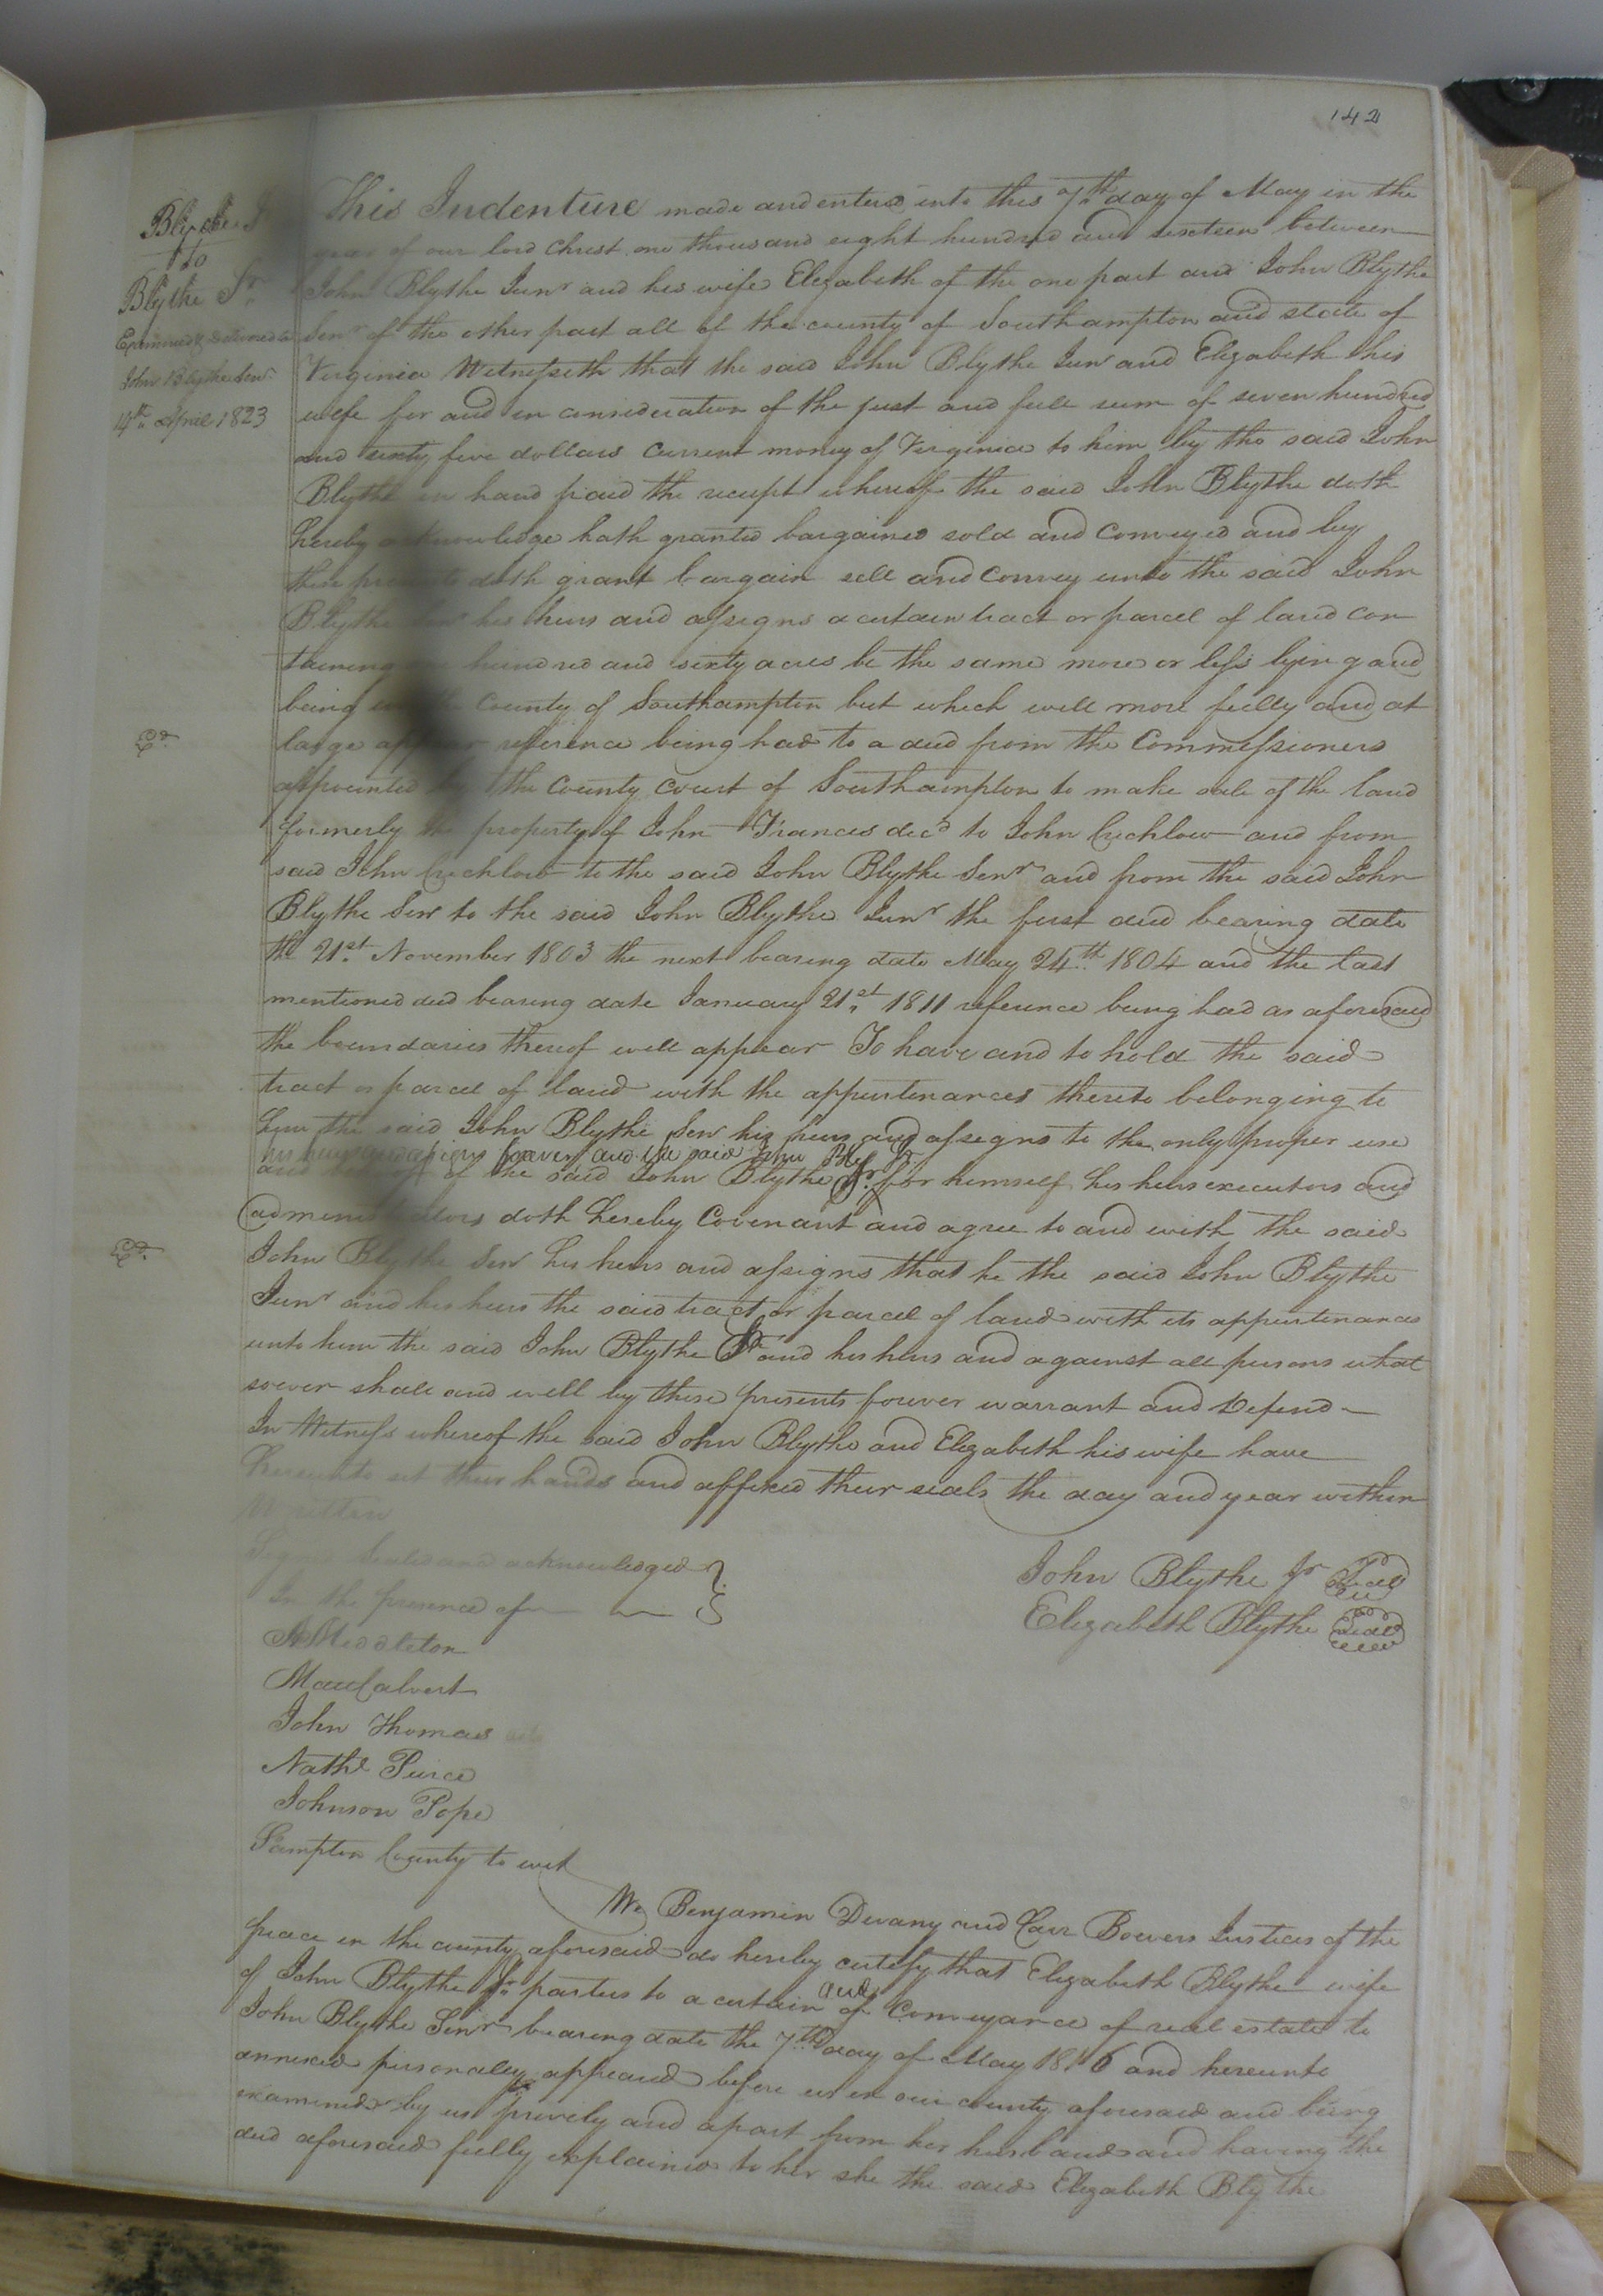 142
Blythe J
to
Blythe Sr.
Examined & delivered to
John Blythe Senr.
14th April 1823
This Indenture made and entered into this 7th day of May in the
year of our lord Christ one thousand eight hundred and sixteen between
John Blythe Junr and his wife Elizabeth of the one part and John Blythe
Senr of the other part all of the county of Southampton and state of
Virginia Witnesseth that the said John Blythe Jun and Elizabeth his
wife for and in consideration of the just and full sum of seven hundred
and sixty five dollars current money of Virginia to him by the said John
Blythe in hand paid the receipt whereof the said John Blythe doth
hereby acknowledge hath granted bargained sold and conveyed and by
these presents doth grant bargain sell and convey unto the said John
Blythe Senr his heirs and assigns a certain tract or parcel of land con
taining hundred and sixty acres be the same more or less lying and
being in the County of Southampton but which will more fully and at
large appear reference being had to a deed from the Commissioners
appointed by the County Court of Southampton to make sale of the land
formerly the property of John Frances decd to John Crichlow and from
said John Crichlow to the said John Blythe Senr and from the said John
Blythe Senr to the said John Blythe Junr the first deed bearing date
the 21st November 1803 the next bearing date May 24th 1804 and the last
mentioned deed bearing date January 21st 1811 reference being had as aforesaid
the boundaries thereof will appear To have and to hold the said
tract or parcel of land with the appurtenances thereto belonging to
him the said John Blythe Senr his heirs and assigns to the only proper use
his heirs and assigns forever and the said John Bly Jr
and behoof of the said John Blythe Sr. for himself his heirs executors and
administrators doth hereby Covenant and agree to and with the said
John Blythe Senr his heirs and assigns that he the said John Blythe
Junr and his heirs the said tract or parcel of land with its appurtenances
unto him the said John Blythe Sr and his heirs and against all persons what
soever shall and will by these presents forever warrant and Defend
In Witness whereof the said John Blythe and Elizabeth his wife have
hereunto set their hands and affixed their seals the day and year within
Written
Signed Sealed and acknowledged
In the presence of
John Blythe Jr Seal
Elizabeth Blythe Seal
Middleton
Calvert
John Thomas
Nathl Peirce
Johnson Pope
Sampton County to wit
We Benjamin Devany and Carr Bowers Justices of the
peace in the county aforesaid do hereby certify that Elizabeth Blythe wife
of John Blythe Jr. parties to a certain deed of Conveyance of real estate to
John Blythe Senr bearing date the 7th day of May 1816 and hereunto
annexed personally appeared before us in our county aforesaid and being
examined by us privily and apart from her husband and having the
deed aforesaid fully explained to her she the said Elizabeth Blythe